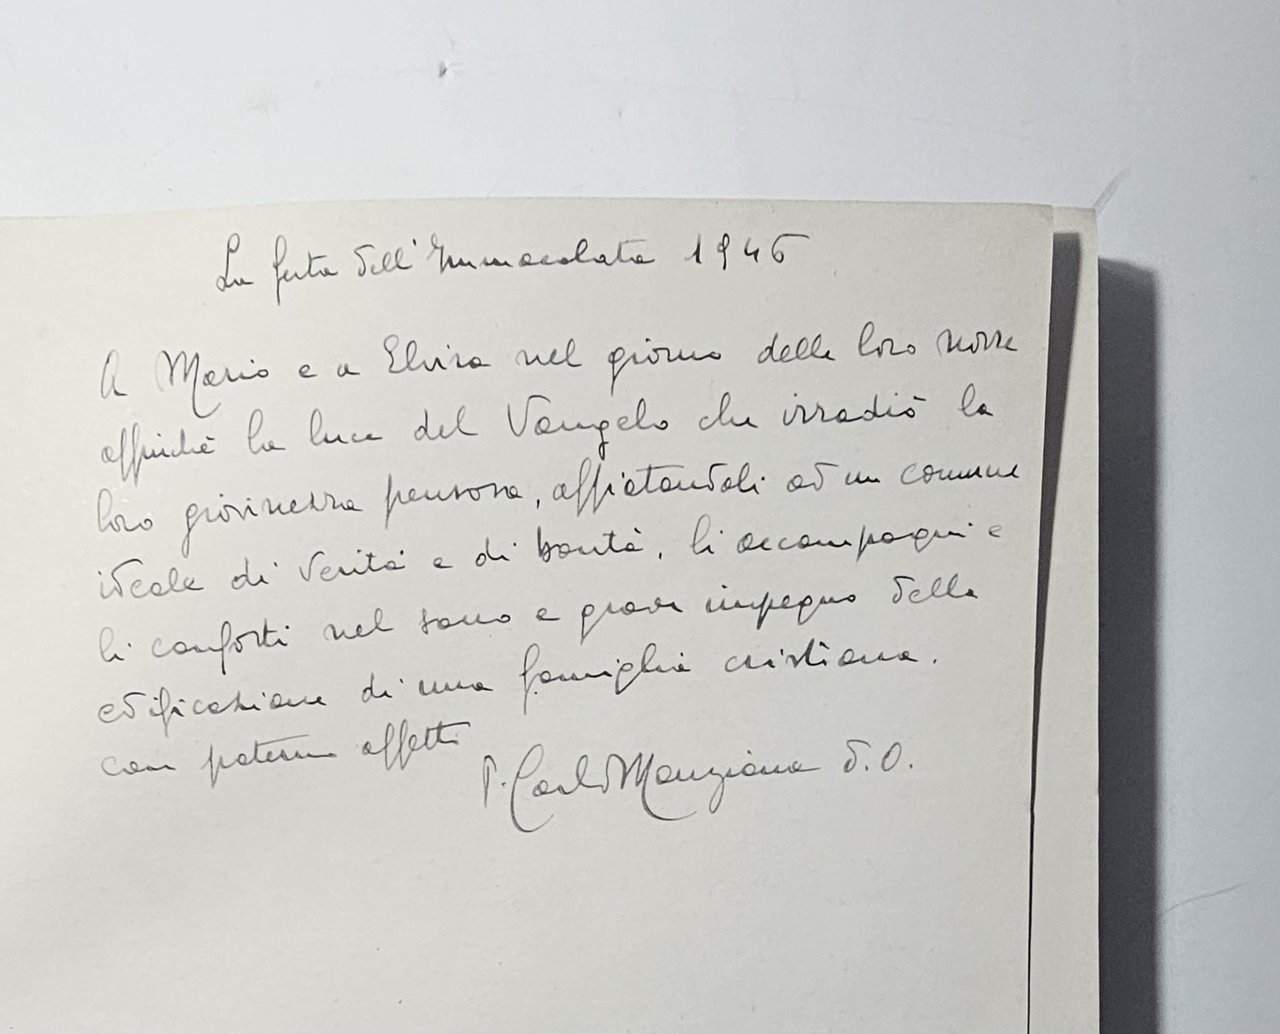 La festa dell'Immacolata 1946
A Mario e a Elvira nel giorno delle loro nozze
affinchè la luce del Vangelo che irradiò la
loro giovinezza pensosa, affiatandoli ad un comune
ideale di verità e di bontà, li accompagni e
li conforti nel santo e grave impegno della
edificazione di una famiglia cristiana.
con paterno affetto
P. Carlo Manziana d. O.